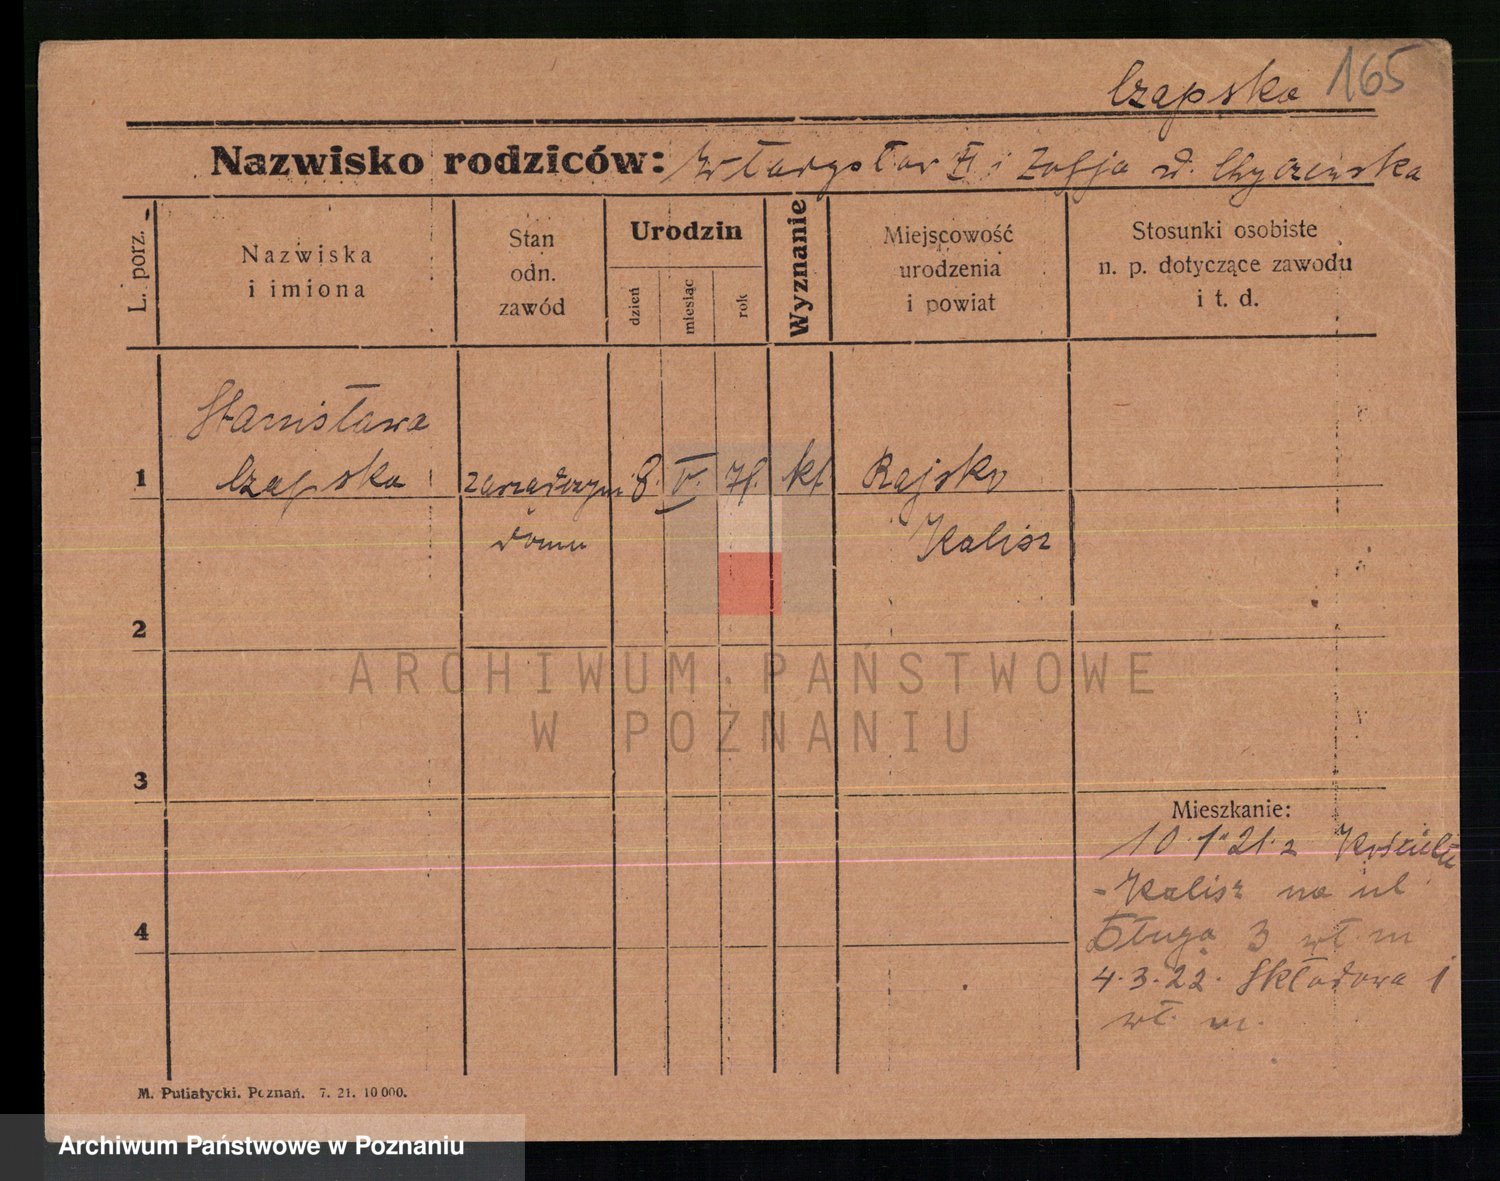 Czapska 165
Nazwisko rodziców: Władysław i Zofja d.
L. porz.
Nazwiska
i imiona
Stan
odn.
zawód
Urodzin
dzień
miesiąc
rok
Wyznanie
Miejscowość
urodzenia
i powiat
Stosunki osobiste
n. p. dotyczące zawodu
i t. d.
Stanisława
1 Czapska 8. V. kt. Rajsko
domu Kalisz
2
ARCHIWUM PAŃSTWOWE
W POZNANIU
3
Mieszkanie:
10.1.21. z
- Kalisz na ul
4 Długą 3 wł. m
4.3.22. Składowa 1
wł. m.
M. Putiatycki. Poznań. 7. 21. 10 000.
Archiwum Państwowe w Poznaniu